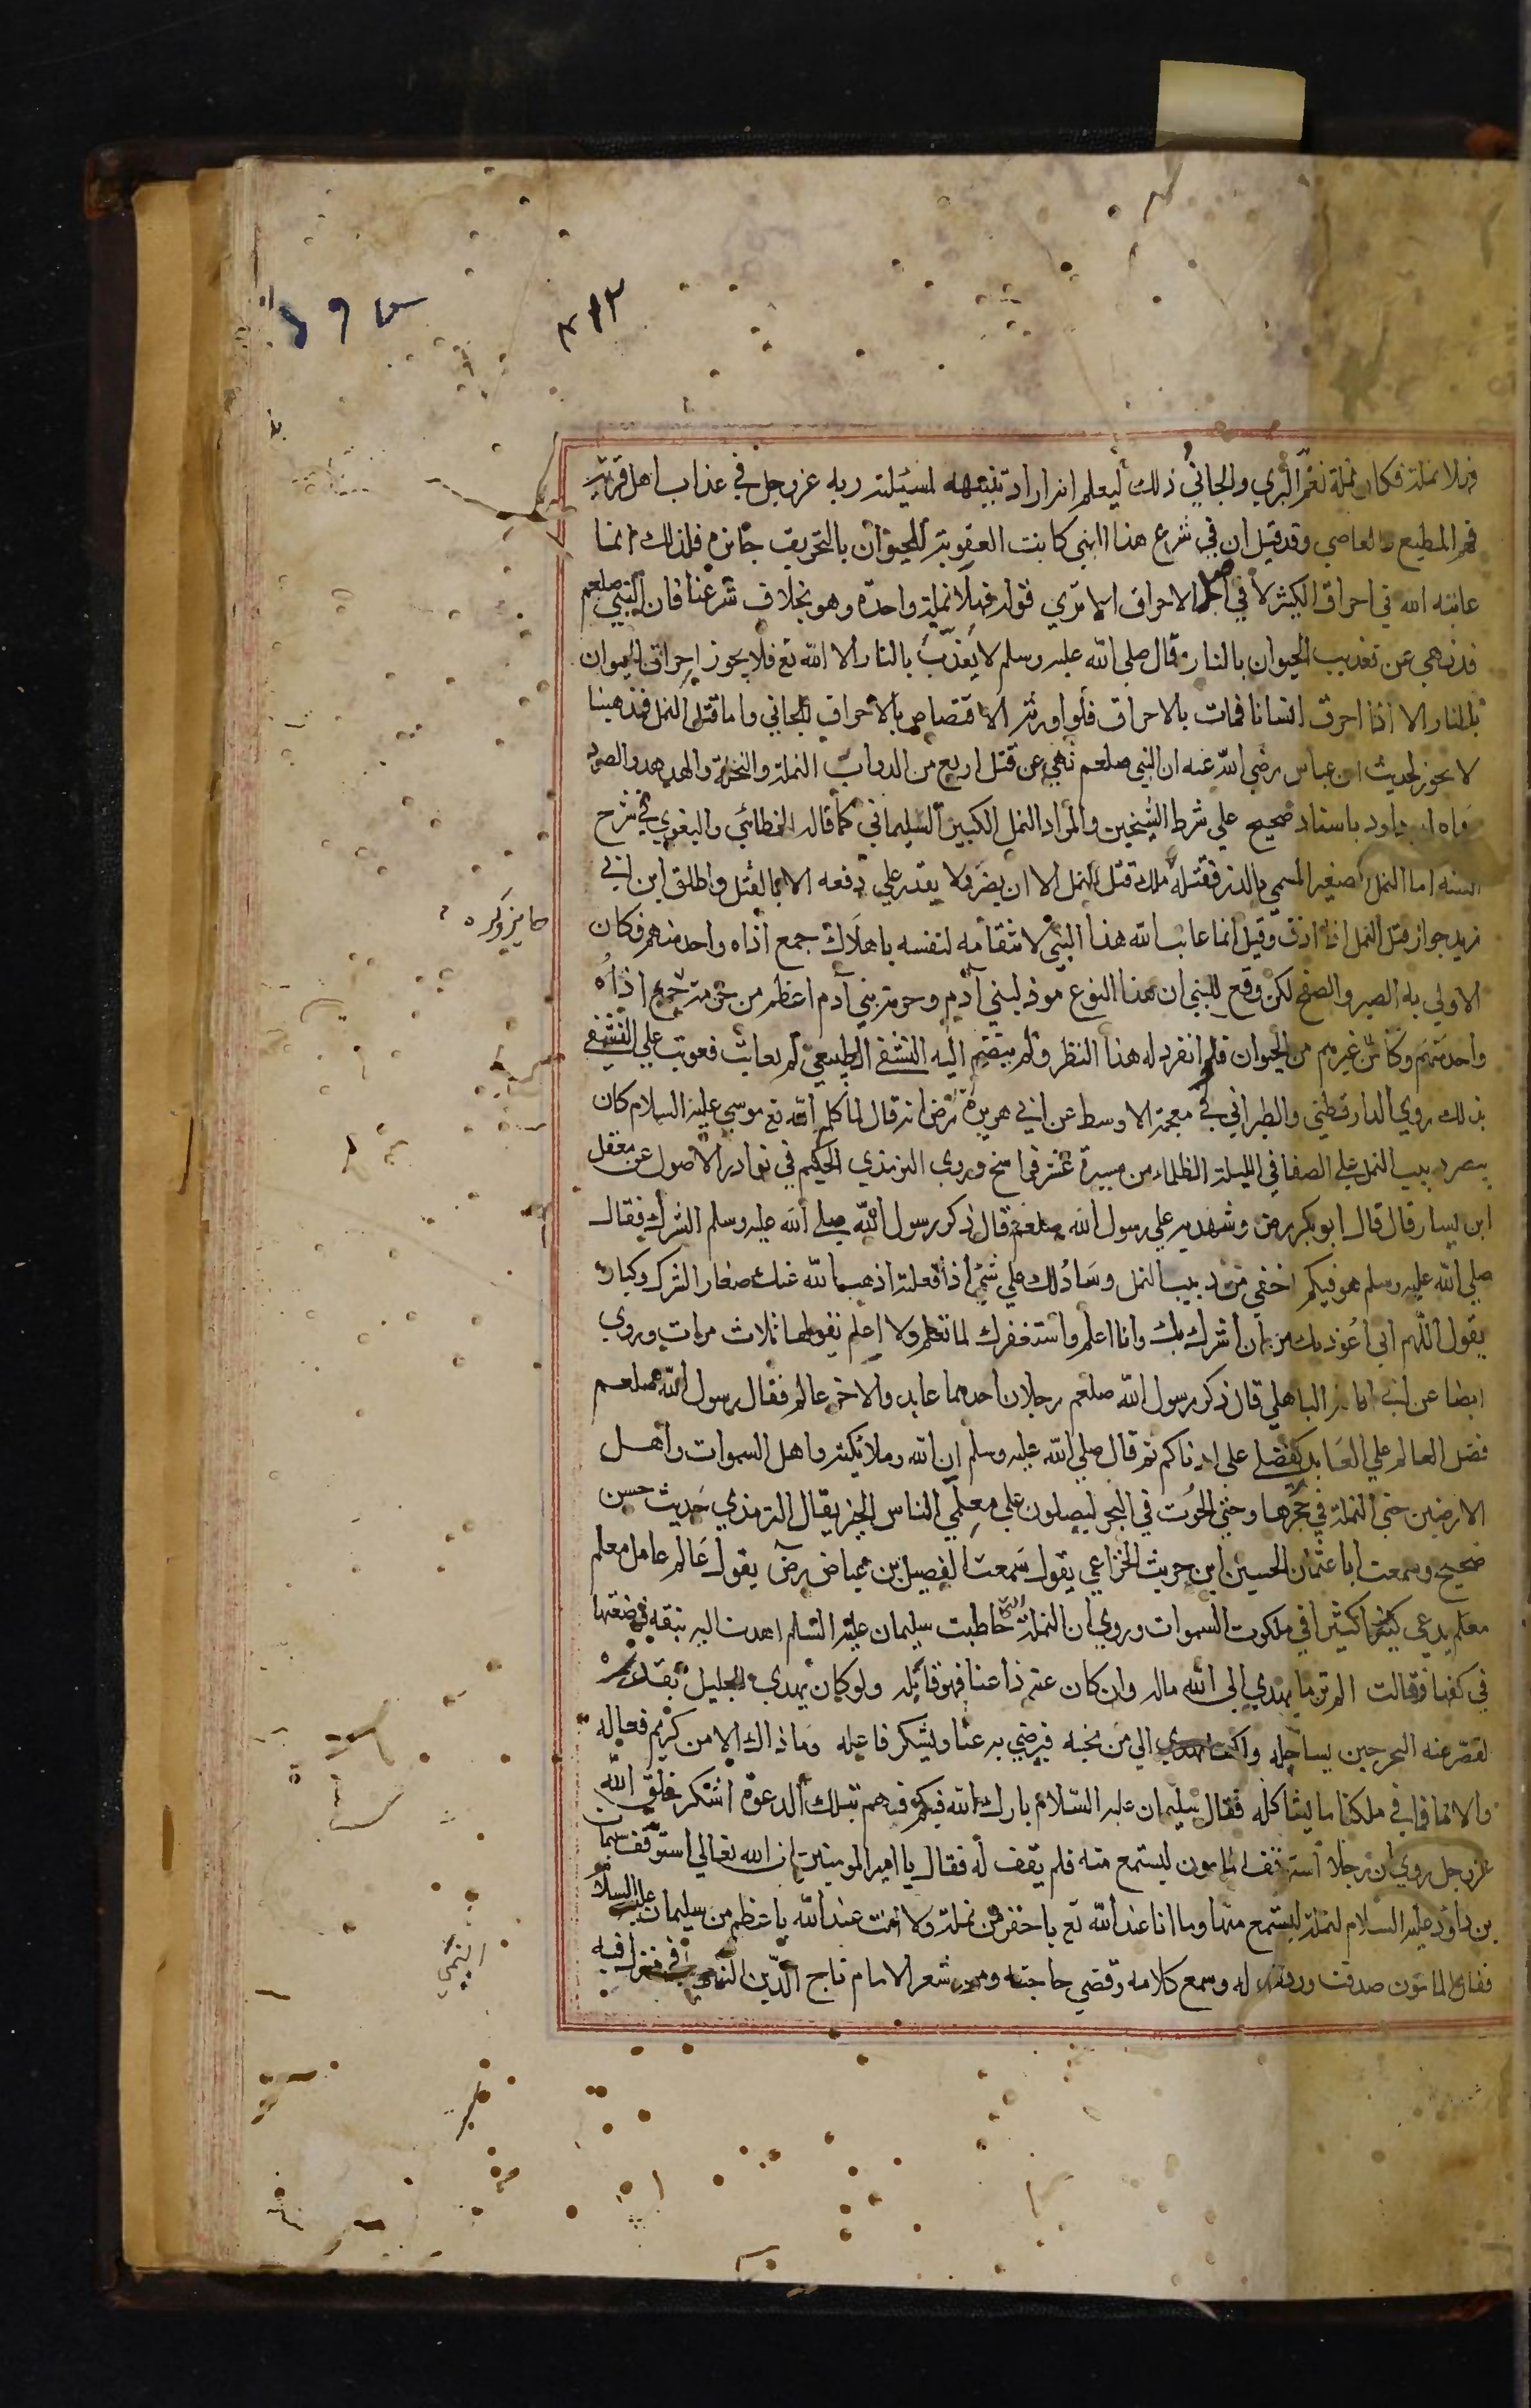 ٣١٢
فهلا نملة فكان نملة نعم البري والجاني ذلك ليعلم انه اراد تنبيهه لمسئلته ربه عز وجل في عذاب اهل قرية
فهم المطيع والعاصي وقد قيل ان في شرع هذا النبي كانت العقوبة للحيوان بالتحريق جائزه فلذلك انما
عاتبه الله في احراق الكثير لا في اصل الاحراق الا تري قوله فهلا نملة واحدة وهو بخلاف شرعنا فان النبي صلعم
قد نهي عن تعذيب الحيوان بالنار وقال صلى الله عليه وسلم لا يعذب بالنار الا الله تع فلا يجوز احراق الحيوان
بالنار الا اذا احرق انسانا فمات بالاحراق فلوارثه الاقتصاص بالاحراق للجاني واما قتل النمل فمذهبنا
لا يجوز لحديث ابن عباس رضي الله عنه ان النبي صلعم نهي عن قتل اربع من الدواب النملة والنحلة والهدهد والصرد
رواه ابو داود باسناد صحيح علي شرط الشيخين والمراد النمل الكبير السليماني كما قاله الخطابي والبغوي في شرح
السنه اما النمل الصغير المسمي بالذر فقتله ملك قتل النمل الا ان يضر ولا يقدر علي دفعه الا بالقتل واطلق ابن ابي
زيد جواز قتل النمل اذا اذت وقيل انما عاتب الله هذا النبي لانتقامه لنفسه باهلاك جمع اذاه واحد منهم وكان
الاولي به الصبر والصفح لكن وقع للنبي ان هذا النوع موذ لبني آدم وحرمة بني آدم اعظم من حرمة جمع اذاه
واحد منهم وكان غيرهم من الحيوان فلو انفرد له هذا النظر ولم ينضم اليه التشفي الطبيعي لم يعاتب فعوتب علي التشفي
بذلك روي الدارقطني والطبراني في معجمه الاوسط عن ابي هريرة رض انه قال لما كلم الله تع موسي عليه السلام كان
يبصر دبيب النمل علي الصفا في الليلة الظلماء من مسيرة عشر فراسخ وروي الترمذي الحكيم في نوادر الاصول عن معقل
ابن يسار قال قال ابو بكر رض وشهد به علي رسول الله صلعم قال ذكر رسول الله صلي الله عليه وسلم الشرك فقال
صلي الله عليه وسلم هو فيكم اخفي من دبيب النمل وسادلك علي شي اذا فعلته اذهب الله عنك صغار الشرك وكباره
يقول اللهم اني اعوذ بك من ان اشرك بك وانا اعلم واستغفرك لما تعلم ولا اعلم تقولها ثلاث مرات وروي
ايضا عن ابي امامة الباهلي قال ذكر رسول الله صلعم رجلان احدهما عابد والاخر عالم فقال رسول الله صلعم
فضل العالم علي العابد كفضلي علي ادناكم ثم قال صلي الله عليه وسلم ان الله وملائكته واهل السموات واهل
الارضين حتي النملة في جحرها وحتي الحوت في البحر ليصلون علي معلمي الناس الخير يقال الترمذي حديث حسن
صحيح وسمعت ابا عثمان الحسين ابن حريث الخزاعي يقول سمعت الفضيل بن عياض رض يقول عالم عامل معلم
معلم يدعي كثيرا كثيرا في ملكوت السموات وروي ان النملة التي خاطبت سليمان عليه السلم اهدت اليه نبقه فوضعتها
في كفها فقالت الم ترنا نهدي الي الله ماله وان كان عنه ذا غنا فهو قابله ولو كان يهدي للجليل بقدره
لقصر عنه البحر حين يساجله ولكننا نهدي الي من نحبه فيرضي به عنا ويشكر فاعله وما ذاك الا من كريم فعاله
والا فما في ملكنا ما يشاكله فقال سليمان عليه السلام بارك الله فيكم فهم بتلك الدعوة اشكر خلق الله
عز وجل روي ان رجلا استوقف المامون ليستمع منه فلم يقف له فقال يا امير المومنين ان الله تعالي استوقف سليمان
بن داود عليه السلام لنملة ليستمع منها وما انا عند الله تع باحقر من نملة ولا انت عند الله باعظم من سليمان عليه السلام
فقال المامون صدقت ووقف له وسمع كلامه وقضي حاجته ومن شعر الامام تاج الدين